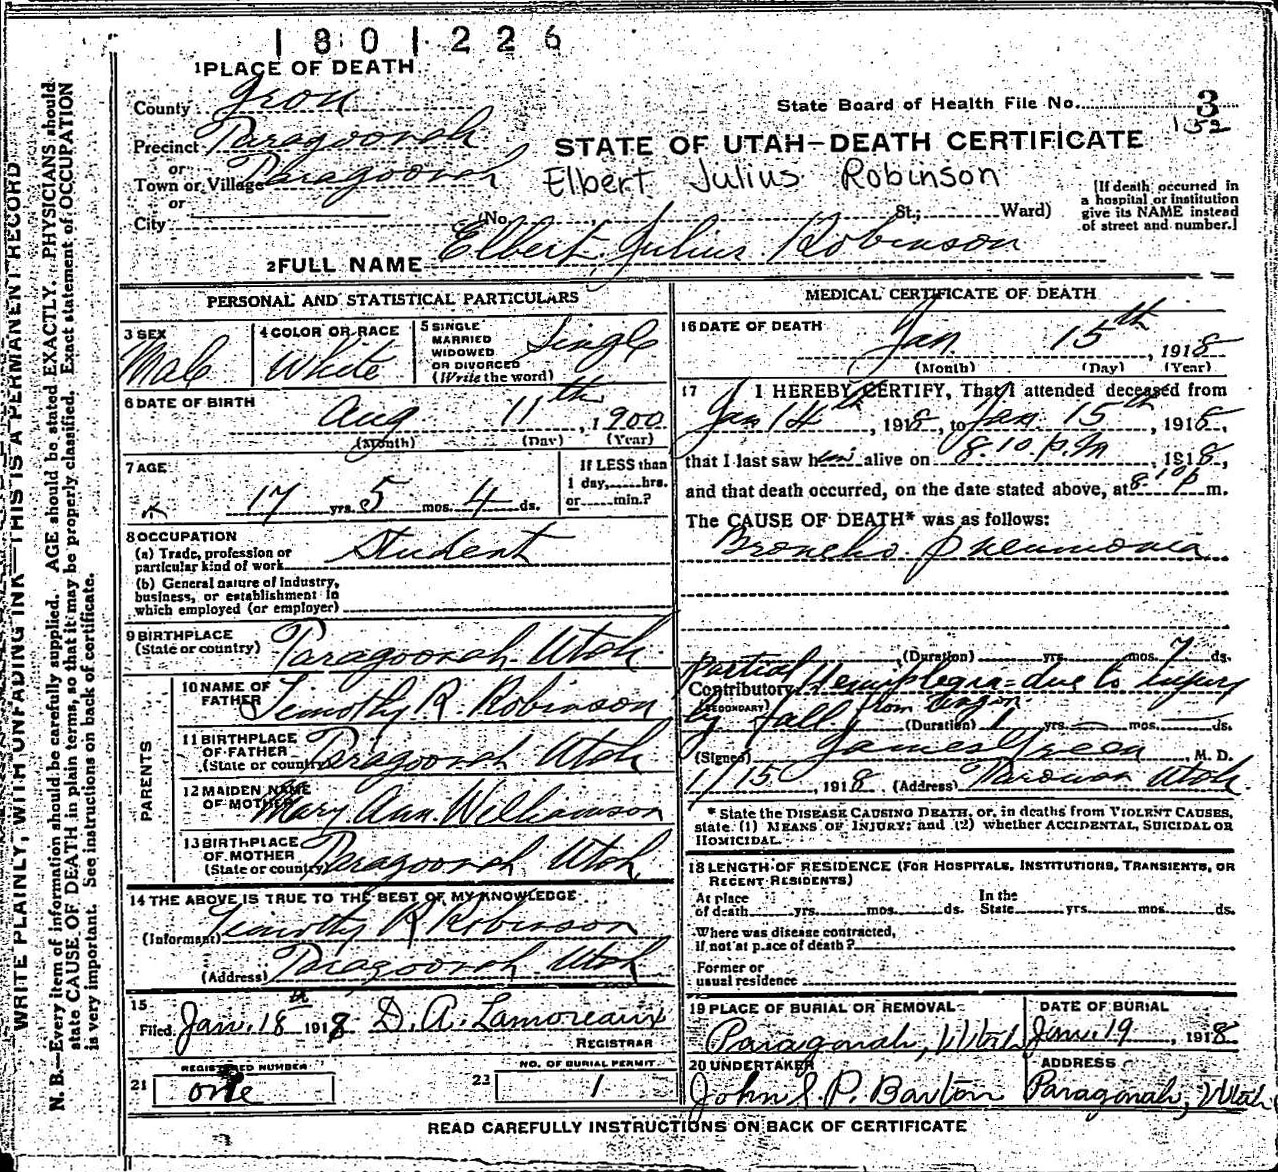 1801226
1 PLACE OF DEATH
County Iron
State Board of Health File No. 3
152
Precinct Paragoonah
STATE OF UTAH—DEATH CERTIFICATE
or
Town or Village Paragoonah
Elbert Julius Robinson
or
City
(No. St.; Ward)
[If death occurred in
a hospital or institution
give its NAME instead
of street and number.]
2 FULL NAME Elbert Julius Robinson
PERSONAL AND STATISTICAL PARTICULARS
3 SEX
Male
4 COLOR OR RACE
White
5 SINGLE
MARRIED
WIDOWED
OR DIVORCED
(Write the word)
Single
6 DATE OF BIRTH
Aug 11th, 1900
(Month) (Day) (Year)
7 AGE
17 yrs. 5 mos. 4 ds.
If LESS than
1 day, hrs.
or min.?
8 OCCUPATION
(a) Trade, profession or
particular kind of work Student
(b) General nature of industry,
business, or establishment in
which employed (or employer)
9 BIRTHPLACE
(State or country) Paragoonah Utah.
PARENTS
10 NAME OF
FATHER Timothy R. Robinson
11 BIRTHPLACE
OF FATHER
(State or country) Paragoonah Utah
12 MAIDEN NAME
OF MOTHER Mary Ann Williamson
13 BIRTHPLACE
OF MOTHER
(State or country) Paragoonah Utah
14 THE ABOVE IS TRUE TO THE BEST OF MY KNOWLEDGE
(Informant) Timothy R Robinson
(Address) Paragoonah Utah
15
Filed Jan. 18th 1918 D. A. Lamoreaux
REGISTRAR
REGISTERED NUMBER
21 one
NO. OF BURIAL PERMIT
22 1
MEDICAL CERTIFICATE OF DEATH
16 DATE OF DEATH
Jan. 15th, 1918
(Month) (Day) (Year)
17 I HEREBY CERTIFY, That I attended deceased from
Jan 14th, 1918, to Jan. 15th, 1918,
that I last saw him alive on 8.10 p.m, 1918,
and that death occurred, on the date stated above, at 8.10 p m.
The CAUSE OF DEATH* was as follows:
Broncho pneumonia
(Duration) yrs. mos. 7 ds.
partial
Contributory Hemiplegia = due to injury
(SECONDARY)
by fall from wagon (Duration) 1 yrs. — mos. — ds.
(Signed) James Green, M. D.
1/15, 1918 (Address) Parowan Utah
* State the DISEASE CAUSING DEATH, or, in deaths from VIOLENT CAUSES,
state (1) MEANS OF INJURY; and (2) whether ACCIDENTAL, SUICIDAL OR
HOMICIDAL.
18 LENGTH OF RESIDENCE (FOR HOSPITALS, INSTITUTIONS, TRANSIENTS, OR
RECENT RESIDENTS)
At place
of death yrs. mos. ds.
In the
State yrs. mos. ds.
Where was disease contracted,
if not at place of death?
Former or
usual residence
19 PLACE OF BURIAL OR REMOVAL
Paragonah, Utah
DATE OF BURIAL
Jan. 19, 1918
20 UNDERTAKER
John S. P. Barton
ADDRESS
Paragonah, Utah
READ CAREFULLY INSTRUCTIONS ON BACK OF CERTIFICATE
WRITE PLAINLY, WITH UNFADING INK—THIS IS A PERMANENT RECORD
N. B.—Every item of information should be carefully supplied. AGE should be stated EXACTLY. PHYSICIANS should
state CAUSE OF DEATH in plain terms, so that it may be properly classified. Exact statement of OCCUPATION
is very important. See instructions on back of certificate.